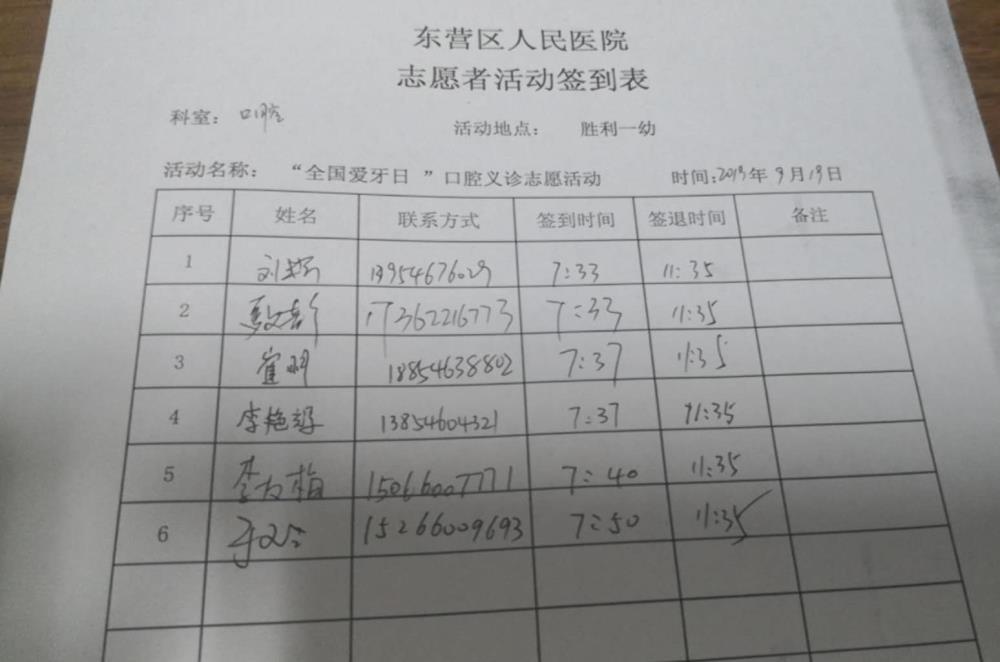 东营区人民医院
志愿者活动签到表
科室: 口腔 活动地点: 胜利一幼
活动名称: “全国爱牙日 ”口腔义诊志愿活动 时间:2019年 9月19日
序号 姓名 联系方式 签到时间 签退时间 备注
1 刘 13954676029 7:33 11:35
2 17362216773 7:33 11:35
3 崔明 18854638802 7:37 11:35
4 李艳 13854604321 7:37 11:35
5 李友梅 15066007771 7:40 11:35
6 15266009693 7:50 11:35